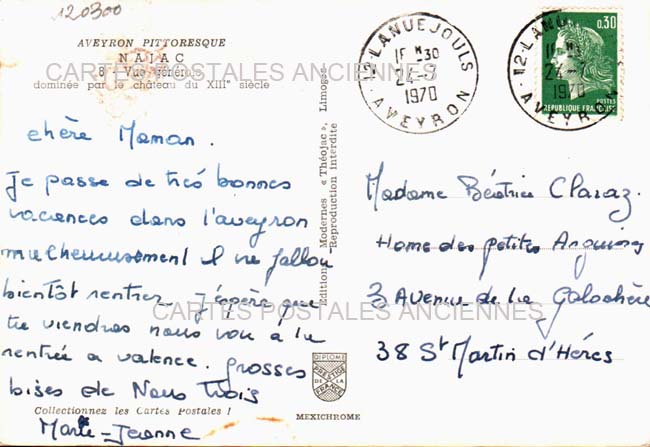 120300
AVEYRON PITTORESQUE
NAJAC
8 Vue générale
dominée par le château du XIIIe siècle
CARTES POSTALES ANCIENNES
chère Maman.
Je passe de très bonnes
vacances dans l'aveyron
malheureusement il va falloir
bientôt rentrer. J'espère que
tu viendras nous voir à la
rentrée a valence. grosses
bises de Nous trois
Marie-Jeanne
Collectionnez les Cartes Postales !
Editions Modernes « Théojac », Limoges
Reproduction Interdite
DIPLOME
PRESTIGE
DE LA
FRANCE
MEXICHROME
12 LANUEJOULS
1 H 30
24-7
1970
AVEYRON
12 LANU
24-7
1970
AVEYRON
0,30
POSTES
REPUBLIQUE FRANÇAISE
Madame Béatrice Claraz.
Home des petites
3 Avenue de la Galochère
CARTES POSTALES ANCIENNES
38 St Martin d'Hères